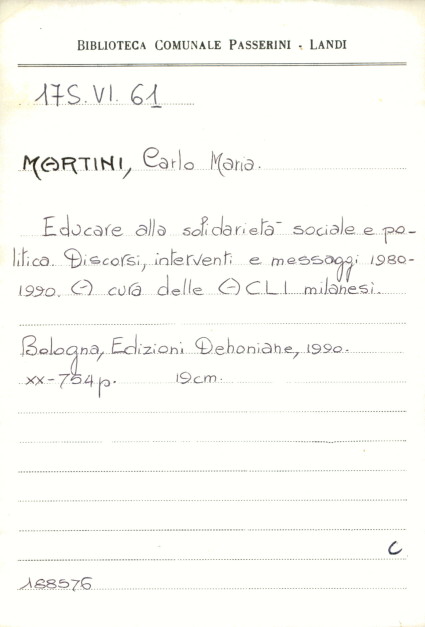 BIBLIOTECA COMUNALE PASSERINI - LANDI
17S.VI.61
MARTINI, Carlo Maria.
Educare alla solidarietà sociale e po-
litica. Discorsi, interventi e messaggi 1980-
1990. (-) cura delle (-) CLI milanesi.
Bologna, Edizioni Dehoniane, 1990.
XX-754 p. 19cm.
C
188576